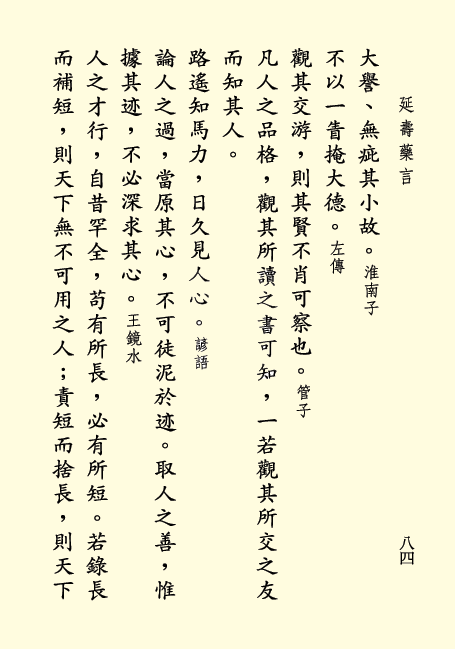 延壽藥言
八四
大譽、無疵其小故。淮南子
不以一眚掩大德。左傳
觀其交游，則其賢不肖可察也。管子
凡人之品格，觀其所讀之書可知，一若觀其所交之友
而知其人。
路遙知馬力，日久見人心。諺語
論人之過，當原其心，不可徒泥於迹。取人之善，惟
據其迹，不必深求其心。王鏡水
人之才行，自昔罕全，苟有所長，必有所短。若錄長
而補短，則天下無不可用之人；責短而捨長，則天下